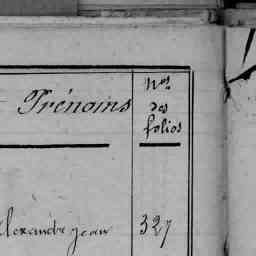 Prénoms
Nos
des
folios
Alexandre Jean 327